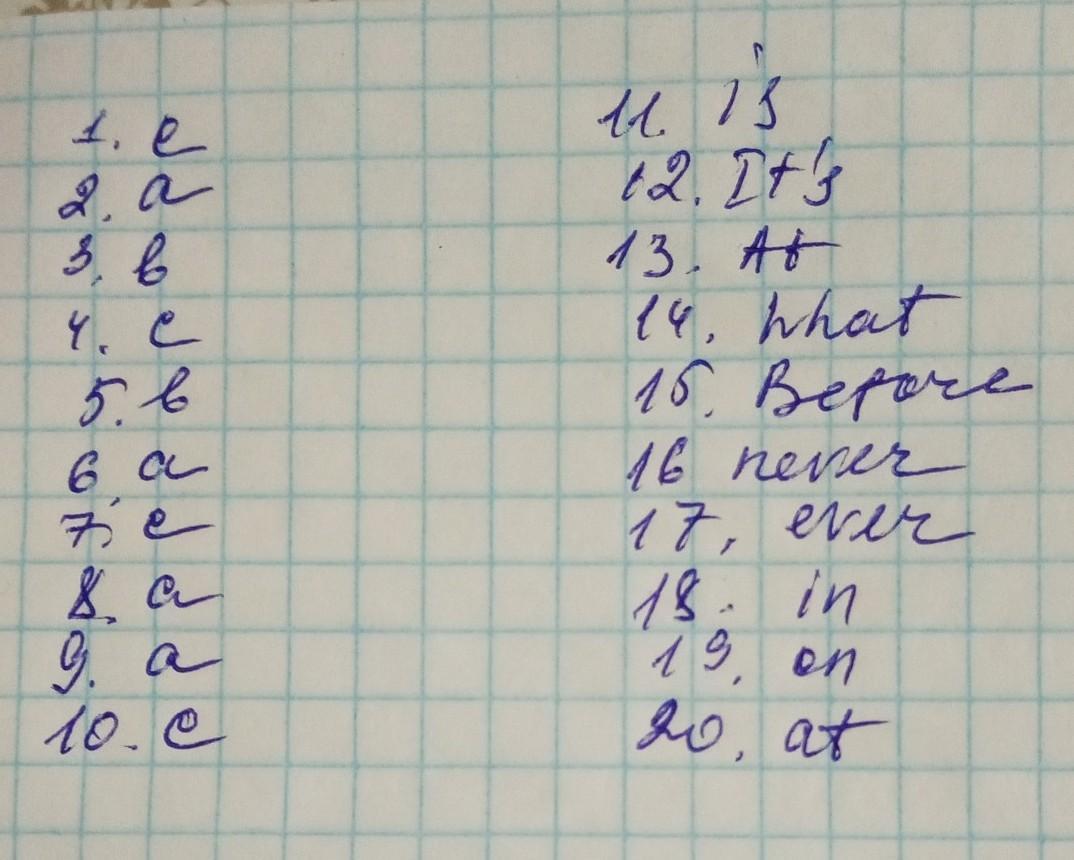 1. c
2. a
3. b
4. c
5. b
6. a
7. c
8. a
9. a
10. c
11. is
12. It's
13. At
14. What
15. Before
16 never
17. ever
18. in
19. on
20. at